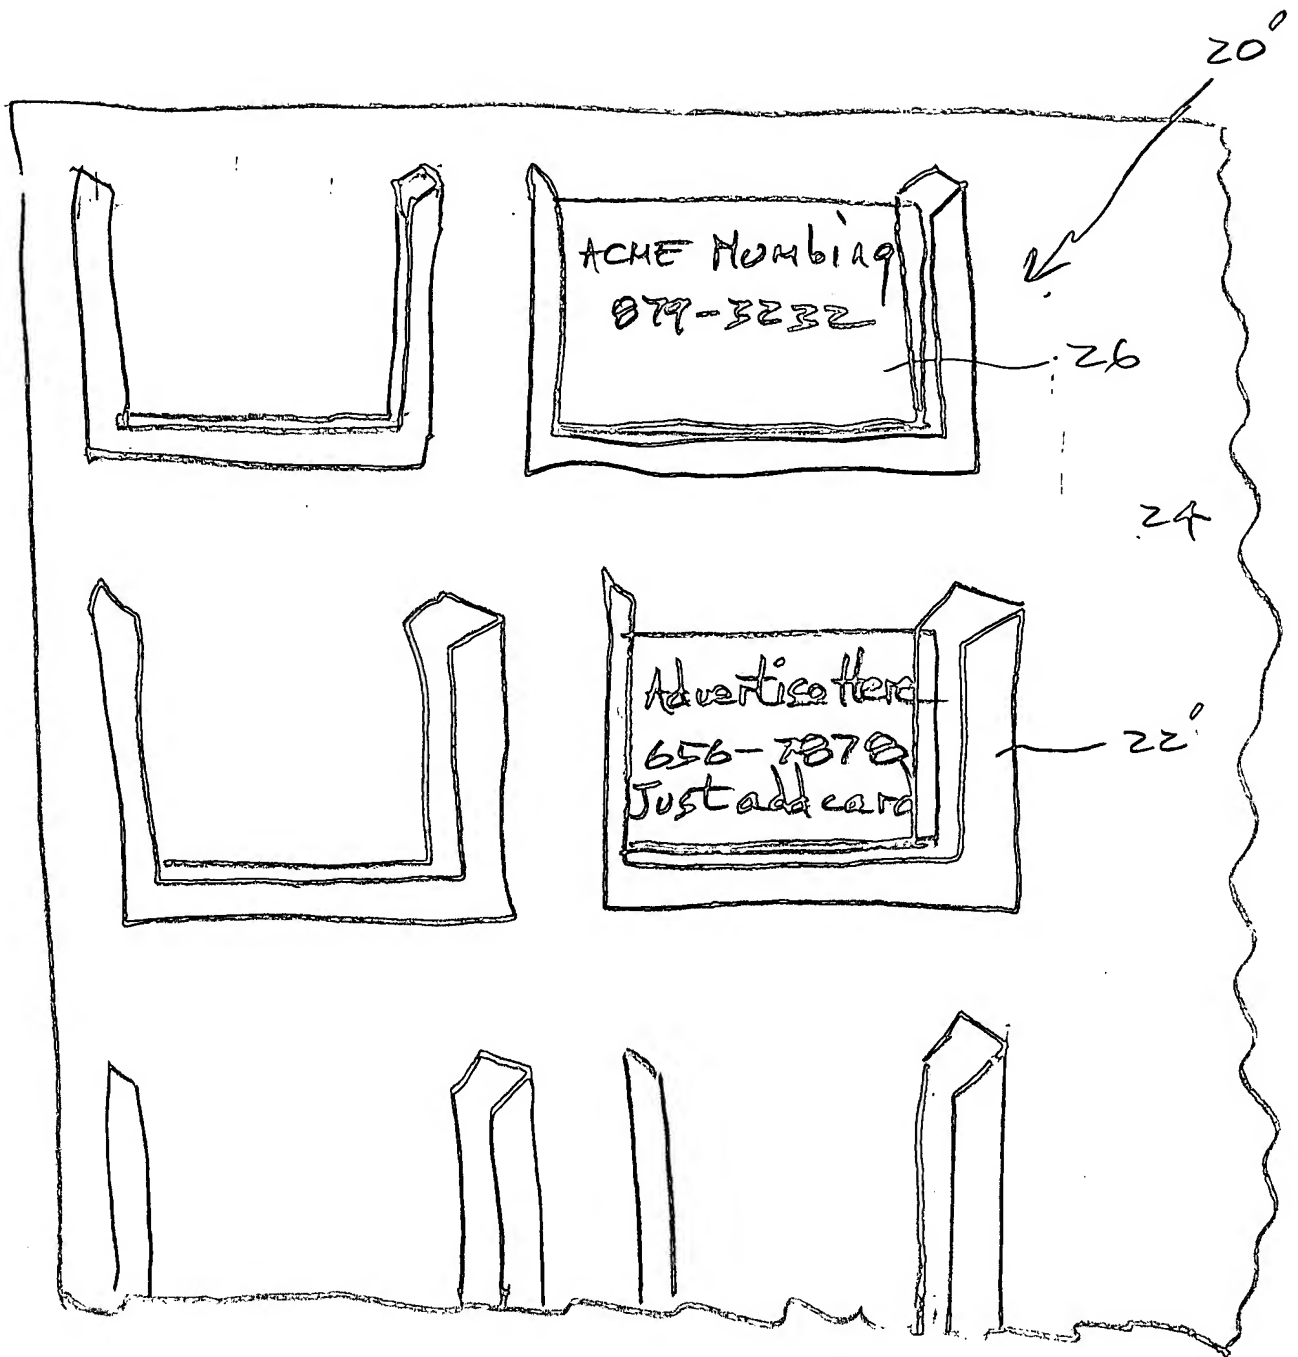 20'
ACME Plumbing
879-3232
26
24
Advertise Here
656-7878
22'
Just add card